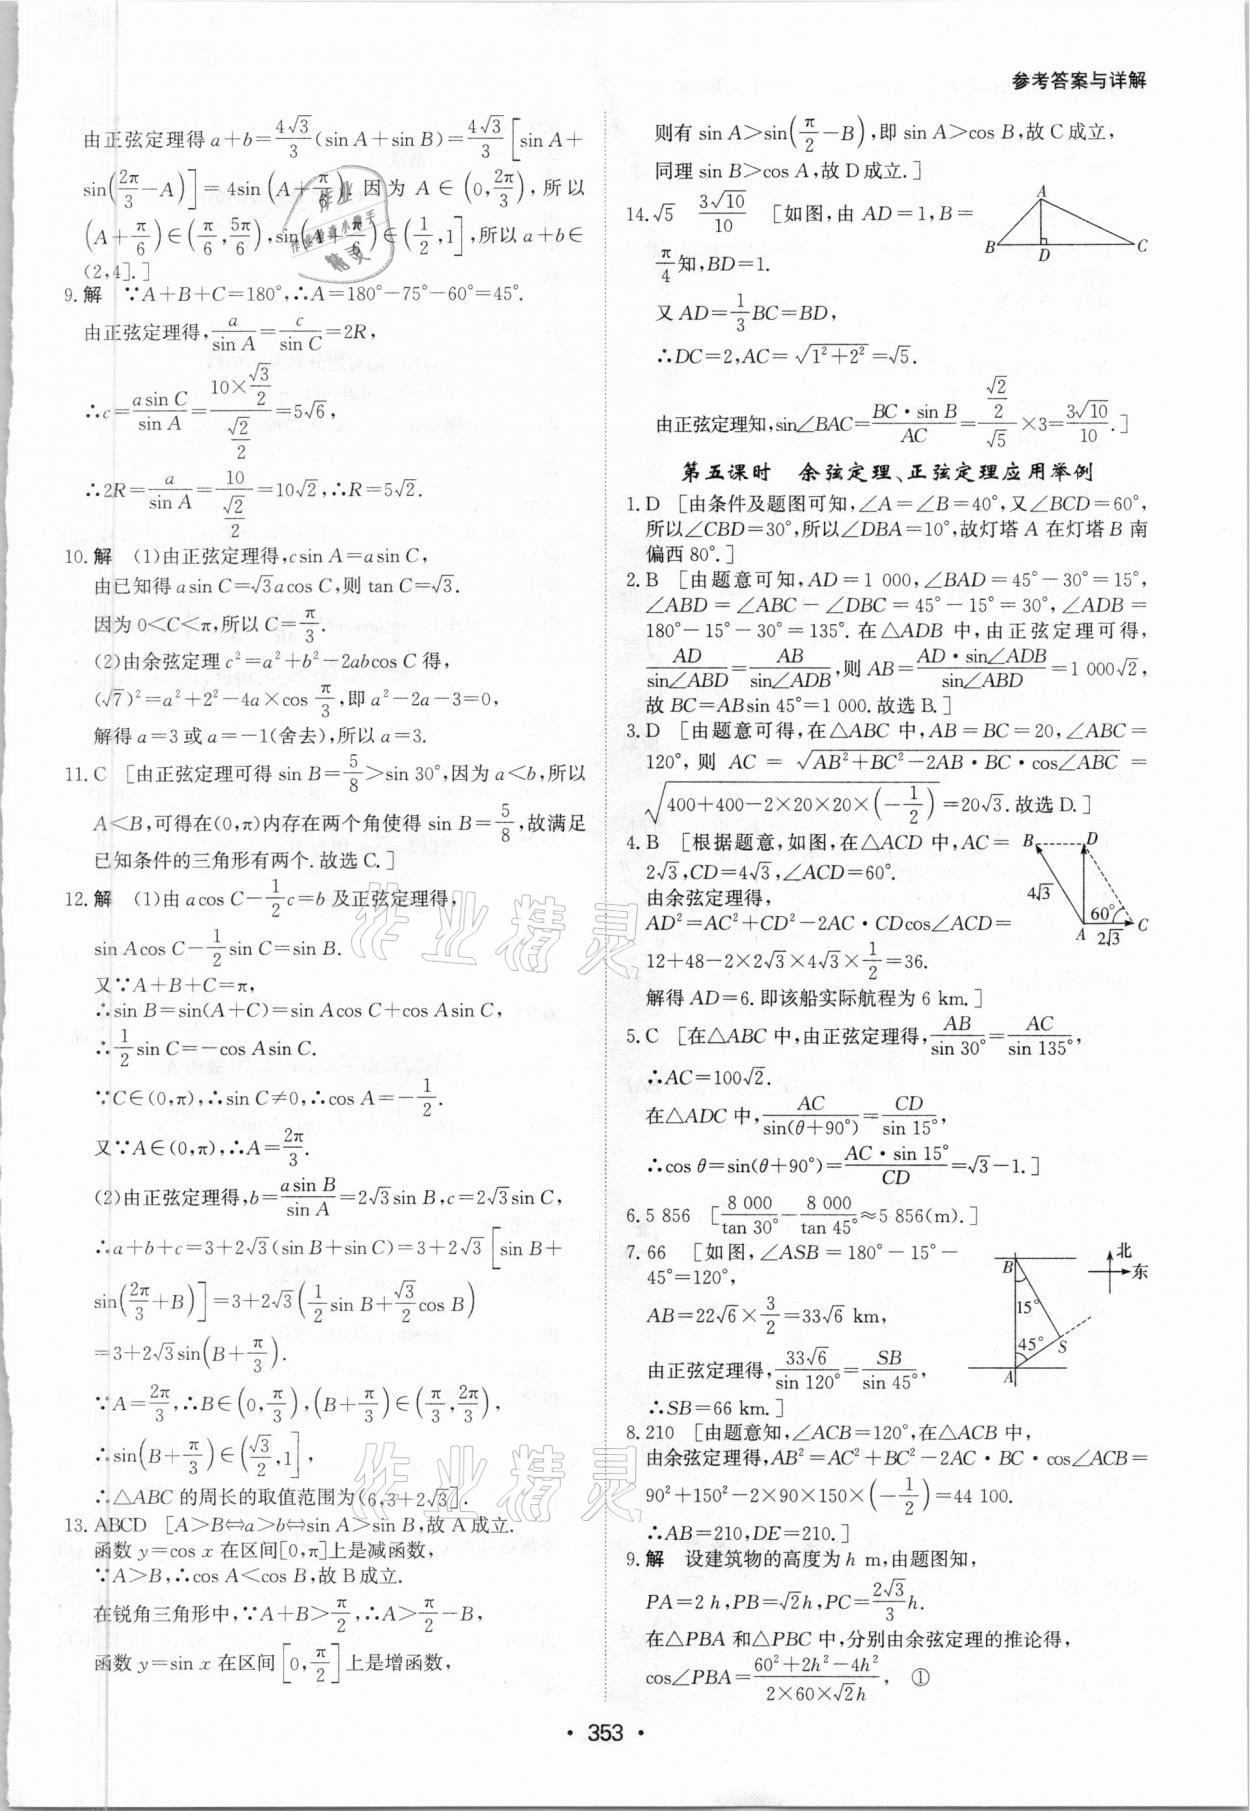 参考答案与详解
由正弦定理得 a+b=\frac{4\sqrt{3}}{3}(sin A+sin B)=\frac{4\sqrt{3}}{3}[sin A+
sin(\frac{2π}{3}-A)]=4sin(A+\frac{π}{6}).因为 A∈(0,\frac{2π}{3}),所以
(A+\frac{π}{6})∈(\frac{π}{6},\frac{5π}{6}),sin(A+\frac{π}{6})∈(\frac{1}{2},1],所以 a+b∈
(2,4].]
9.解 ∵A+B+C=180°,∴A=180°-75°-60°=45°.
由正弦定理得,\frac{a}{sin A}=\frac{c}{sin C}=2R,
∴c=\frac{asin C}{sin A}=\frac{10×\frac{\sqrt{3}}{2}}{\frac{\sqrt{2}}{2}}=5\sqrt{6},
∴2R=\frac{a}{sin A}=\frac{10}{\frac{\sqrt{2}}{2}}=10\sqrt{2},∴R=5\sqrt{2}.
10.解 (1)由正弦定理得,csin A=asin C,
由已知得 asin C=\sqrt{3}acos C,则 tan C=\sqrt{3}.
因为 0<C<π,所以 C=\frac{π}{3}.
(2)由余弦定理 c²=a²+b²-2abcos C 得,
(\sqrt{7})²=a²+2²-4a×cos \frac{π}{3},即 a²-2a-3=0,
解得 a=3 或 a=-1(舍去),所以 a=3.
11.C [由正弦定理可得 sin B=\frac{5}{8}>sin 30°,因为 a<b,所以
A<B,可得在(0,π)内存在两个角使得 sin B=\frac{5}{8},故满足
已知条件的三角形有两个.故选 C.]
12.解 (1)由 acos C-\frac{1}{2}c=b 及正弦定理得,
sin Acos C-\frac{1}{2}sin C=sin B.
又∵A+B+C=π,
∴sin B=sin(A+C)=sin Acos C+cos Asin C,
∴\frac{1}{2}sin C=-cos Asin C.
∵C∈(0,π),∴sin C≠0,∴cos A=-\frac{1}{2}.
又∵A∈(0,π),∴A=\frac{2π}{3}.
(2)由正弦定理得,b=\frac{asin B}{sin A}=2\sqrt{3}sin B,c=2\sqrt{3}sin C,
∴a+b+c=3+2\sqrt{3}(sin B+sin C)=3+2\sqrt{3}[sin B+
sin(\frac{2π}{3}+B)]=3+2\sqrt{3}(\frac{1}{2}sin B+\frac{\sqrt{3}}{2}cos B)
=3+2\sqrt{3}sin(B+\frac{π}{3}).
∵A=\frac{2π}{3},∴B∈(0,\frac{π}{3}),(B+\frac{π}{3})∈(\frac{π}{3},\frac{2π}{3}),
∴sin(B+\frac{π}{3})∈(\frac{\sqrt{3}}{2},1],
∴△ABC 的周长的取值范围为(6,3+2\sqrt{3}].
13.ABCD [A>B⇔a>b⇔sin A>sin B,故 A 成立.
函数 y=cos x 在区间[0,π]上是减函数,
∵A>B,∴cos A<cos B,故 B 成立.
在锐角三角形中,∵A+B>\frac{π}{2},∴A>\frac{π}{2}-B,
函数 y=sin x 在区间[0,\frac{π}{2}]上是增函数,
则有 sin A>sin(\frac{π}{2}-B),即 sin A>cos B,故 C 成立,
同理 sin B>cos A,故 D 成立.]
14.\sqrt{5} \frac{3\sqrt{10}}{10} [如图,由 AD=1,B=
\frac{π}{4}知,BD=1.
又 AD=\frac{1}{3}BC=BD,
∴DC=2,AC=\sqrt{1²+2²}=\sqrt{5}.
由正弦定理知,sin∠BAC=\frac{BC·sin B}{AC}=\frac{\frac{\sqrt{2}}{2}}{\sqrt{5}}×3=\frac{3\sqrt{10}}{10}.]
A
B D C
第五课时 余弦定理、正弦定理应用举例
1.D [由条件及题图可知,∠A=∠B=40°,又∠BCD=60°,
所以∠CBD=30°,所以∠DBA=10°,故灯塔 A 在灯塔 B 南
偏西 80°.]
2.B [由题意可知,AD=1 000,∠BAD=45°-30°=15°,
∠ABD=∠ABC-∠DBC=45°-15°=30°,∠ADB=
180°-15°-30°=135°.在△ADB 中,由正弦定理可得,
\frac{AD}{sin∠ABD}=\frac{AB}{sin∠ADB},则 AB=\frac{AD·sin∠ADB}{sin∠ABD}=1 000\sqrt{2},
故 BC=ABsin 45°=1 000.故选 B.]
3.D [由题意可得,在△ABC 中,AB=BC=20,∠ABC=
120°,则 AC=\sqrt{AB²+BC²-2AB·BC·cos∠ABC}=
\sqrt{400+400-2×20×20×(-\frac{1}{2})}=20\sqrt{3}.故选 D.]
4.B [根据题意,如图,在△ACD 中,AC=
2\sqrt{3},CD=4\sqrt{3},∠ACD=60°.
由余弦定理得,
AD²=AC²+CD²-2AC·CDcos∠ACD=
12+48-2×2\sqrt{3}×4\sqrt{3}×\frac{1}{2}=36.
解得 AD=6.即该船实际航程为 6 km.]
B D
4\sqrt{3}
60°
A 2\sqrt{3} C
5.C [在△ABC 中,由正弦定理得,\frac{AB}{sin 30°}=\frac{AC}{sin 135°},
∴AC=100\sqrt{2}.
在△ADC 中,\frac{AC}{sin(θ+90°)}=\frac{CD}{sin 15°},
∴cos θ=sin(θ+90°)=\frac{AC·sin 15°}{CD}=\sqrt{3}-1.]
6.5 856 [\frac{8 000}{tan 30°}-\frac{8 000}{tan 45°}≈5 856(m).]
7.66 [如图,∠ASB=180°-15°-
45°=120°,
AB=22\sqrt{6}×\frac{3}{2}=33\sqrt{6} km,
由正弦定理得,\frac{33\sqrt{6}}{sin 120°}=\frac{SB}{sin 45°},
∴SB=66 km.]
北
东
B
15°
45° S
A
8.210 [由题意知,∠ACB=120°,在△ACB 中,
由余弦定理得,AB²=AC²+BC²-2AC·BC·cos∠ACB=
90²+150²-2×90×150×(-\frac{1}{2})=44 100.
∴AB=210,DE=210.]
9.解 设建筑物的高度为 h m,由题图知,
PA=2h,PB=\sqrt{2}h,PC=\frac{2\sqrt{3}}{3}h.
在△PBA 和△PBC 中,分别由余弦定理的推论得,
cos∠PBA=\frac{60²+2h²-4h²}{2×60×\sqrt{2}h}, ①
作业精灵
作业精灵
· 353 ·